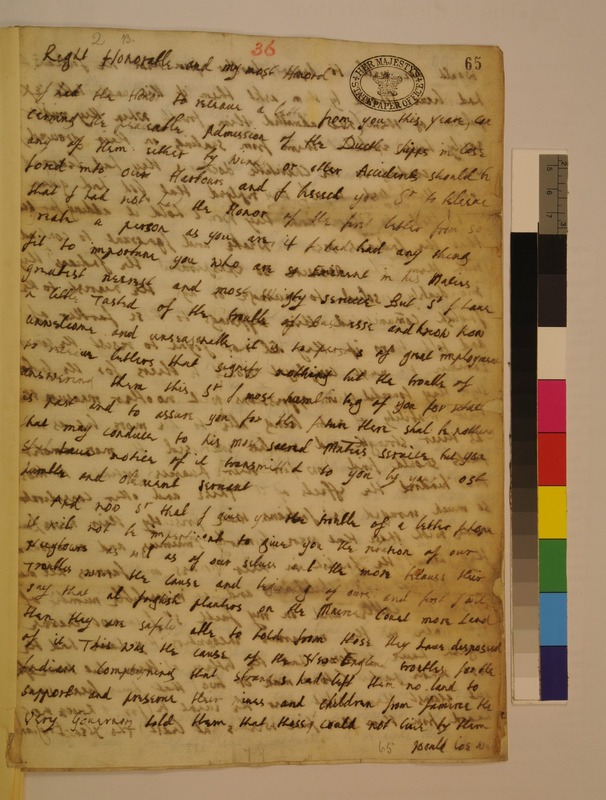 2 B.
36
65
HER MAJESTY'S STATE PAPER OFFICE
Right Honorable and my most Honord
I had the Honor to receive a from you this yeare, con
cerning the seasonable Admission of the Dutch shipps in case
any of them either by Wind or other Accidents should be
forced into our Harbours and I beseech you Sr to believe
that I had not the Honor of the first letter from so
a person as you are if I had had any thing
fit to importune you who are so Eminent in his Maties
greatest neerest and most weighty services But Sr I have
a little Tasted of the trouble of businesse and know how
unwelcome and unseasonable it is to persons of great imployment
to receive letters that signify nothing but the trouble of
answering them this Sr I most humbly beg of you for what
is past and to assure you for the future there shall be nothing
that may conduce to his most sacred Maties service but you
shall have notice of it transmitted to you by your most
humble and obedient servant
And now Sr that I give you the trouble of a letter
it will not be impertinent to give you the relation of our
Neighbours as well as of our selves and the more because their
Troubles were the cause and beginning of ours and first I will
say that all English planters on the Maine Covet more Land
then they are safely able to hold from those they have disposesd
of it This was the cause of the New England troubles for the
Indians Complayning that strangers had left them no land to
support and preserve their wives and children from famine the
very Governor told them that they could not live by them
65 would